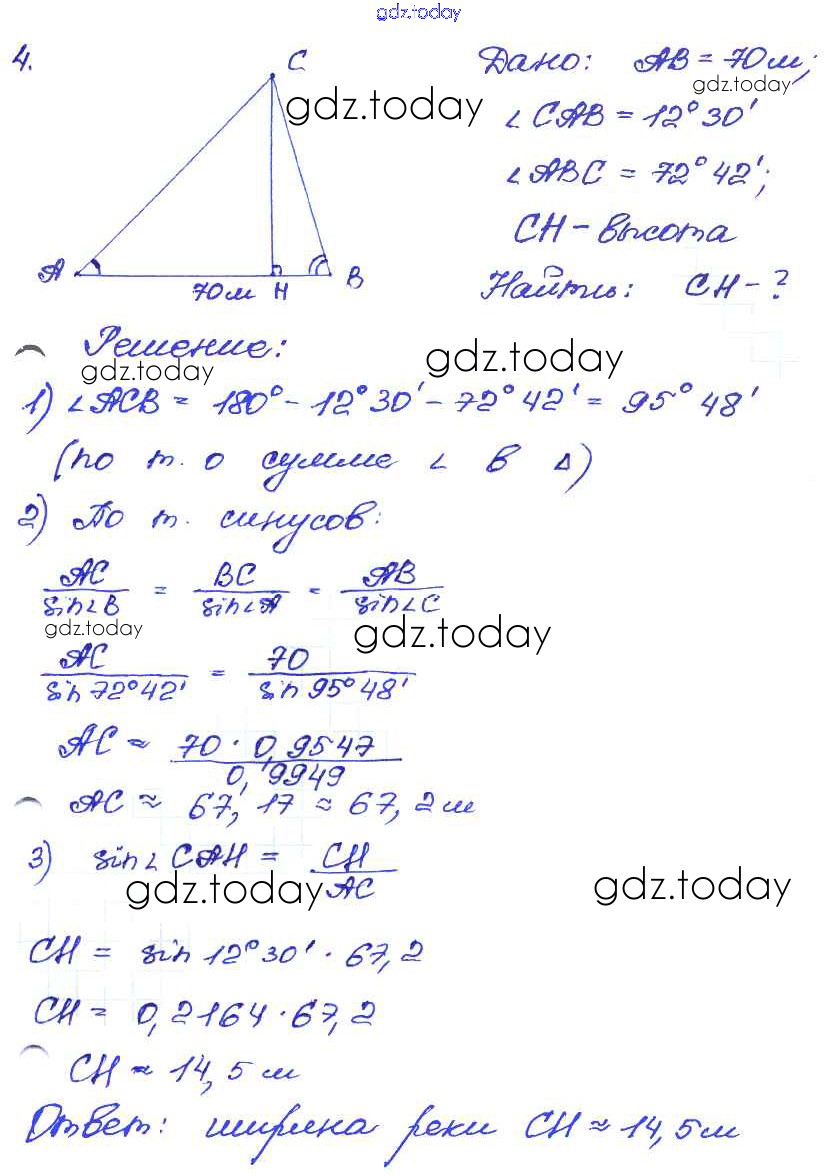 gdz.today
4.
C
Дано: AB = 70м;
gdz.today
gdz.today
∠CAB = 12°30'
∠ABC = 72°42';
CH - высота
A
B
70м H
Найти: CH - ?
Решение:
gdz.today
gdz.today
1) ∠ACB = 180° - 12°30' - 72°42' = 95°48'
(по т. о сумме ∠ в Δ)
2) По т. синусов:
AC/sin∠B = BC/sin∠A = AB/sin∠C
gdz.today
gdz.today
AC/sin72°42' = 70/sin95°48'
AC ≈ 70 · 0,9547/0,9949
AC ≈ 67,17 ≈ 67,2м
3) sin∠CAH = CH/AC
gdz.today
gdz.today
CH = sin12°30' · 67,2
CH = 0,2164 · 67,2
CH ≈ 14,5м
Ответ: ширина реки CH ≈ 14,5м